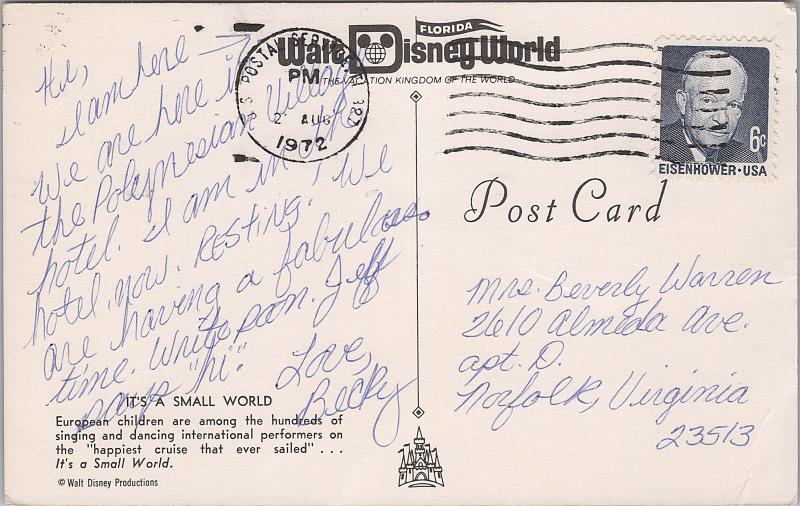 Hi,
I am here →
We are here in
the Polynesian Village
hotel. I am in the
hotel now. Resting! We
are having a fabulous
time. Write soon. Jeff
says "hi."
Love,
Becky
IT'S A SMALL WORLD
European children are among the hundreds of
singing and dancing international performers on
the "happiest cruise that ever sailed" . . .
It's a Small World.
© Walt Disney Productions
FLORIDA
Walt Disney World
THE VACATION KINGDOM OF THE WORLD
U.S. POSTAL SERVICE 327
PM
2 AUG
1972
6c
EISENHOWER·USA
Post Card
Mrs. Beverly Warren
2610 Almeda Ave.
apt. D.
Norfolk, Virginia
23513